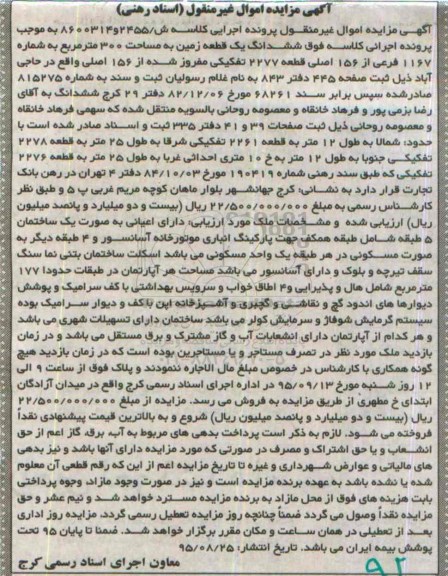 آگهی مزایده اموال غیرمنقول (اسناد رهنی)
آگهی مزایده اموال غیرمنقول پرونده اجرایی کلاسه ش/۸۶۰۰۳۱۴۰۲۴۵۵ به موجب
پرونده اجرائی کلاسه فوق ششدانگ یک قطعه زمین به مساحت ۳۰۰ مترمربع به شماره
۱۱۶۷ فرعی از ۱۵۶ اصلی قطعه ۲۲۷۷ تفکیکی مفروز شده از ۱۵۶ اصلی واقع در حاجی
آباد ذیل ثبت صفحه ۴۴۵ دفتر ۸۴۳ به نام غلام رسولیان ثبت و سند به شماره ۸۱۵۲۷۵
صادرشده سپس برابر سند ۶۸۲۶۱ مورخ ۸۲/۱۲/۰۶ دفتر ۲۹ کرج ششدانگ به آقای
رضا بزمی پور و فرهاد خانقاه و معصومه روحانی بالسویه منتقل شده که سهمی فرهاد خانقاه
و معصومه روحانی ذیل ثبت صفحات ۳۹ و ۴۱ دفتر ۳۳۵ ثبت و اسناد صادر شده است با
حدود: شمالا به طول ۱۲ متر به قطعه ۲۲۶۱ تفکیکی شرقا به طول ۲۵ متر به قطعه ۲۲۷۸
تفکیکی جنوبا به طول ۱۲ متر به خ ۱۰ متری احداثی غربا به طول ۲۵ متر به قطعه ۲۲۷۶
تفکیکی که طبق سند رهنی شماره ۱۹۰۴۱۹ مورخ ۸۴/۱۰/۰۳ دفتر ۴ تهران در رهن بانک
تجارت قرار دارد به نشانی: کرج جهانشهر بلوار ماهان کوچه مریم غربی پ ۵ و طبق نظر
کارشناس رسمی به مبلغ ۲۲/۵۰۰/۰۰۰/۰۰۰ ریال (بیست و دو میلیارد و پانصد میلیون
ریال) ارزیابی شده و مشخصات ملک مورد ارزیابی، دارای اعیانی به صورت یک ساختمان
۵ طبقه شامل طبقه همکف جهت پارکینگ انباری موتورخانه آسانسور و ۴ طبقه دیگر به
صورت مسکونی در هر طبقه یک واحد مسکونی می باشد اسکلت ساختمان بتنی نما سنگ
سقف تیرچه و بلوک و دارای آسانسور می باشد مساحت هر آپارتمان در طبقات حدودا ۱۷۷
مترمربع شامل هال و پذیرایی و ۴ اطاق خواب و سرویس بهداشتی با کف سرامیک و پوشش
دیوارها های اندود گچ و نقاشی و گچبری و آشپزخانه اپن با کف و دیوار سرامیک بوده
سیستم گرمایش شوفاژ و سرمایش کولر می باشد ساختمان دارای تسهیلات شهری می باشد
و هر کدام از آپارتمان دارای انشعابات آب و گاز مشترک و برق مستقل می باشد و در زمان
بازدید ملک مورد نظر در تصرف مستاجر و یا مستاجرین بوده است که در زمان بازدید هیچ
گونه همکاری با کارشناس در خصوص مبلغ مال الاجاره ننمودند و پلاک فوق از ساعت ۹ الی
۱۲ روز شنبه مورخ ۹۵/۰۹/۱۳ در اداره اجرای اسناد رسمی کرج واقع در میدان آزادگان
ابتدای خ مطهری از طریق مزایده به فروش می رسد. مزایده از مبلغ ۲۲/۵۰۰/۰۰۰/۰۰۰
ریال (بیست و دو میلیارد و پانصد میلیون ریال) شروع و به بالاترین قیمت پیشنهادی نقداً
فروخته می شود. لازم به ذکر است پرداخت بدهی های مربوط به آب، برق، گاز اعم از حق
انشعاب و یا حق اشتراک و مصرف در صورتی که مورد مزایده دارای آنها باشد و نیز بدهی
های مالیاتی و عوارض شهرداری و غیره تا تاریخ مزایده اعم از این که رقم قطعی آن معلوم
شده یا نشده باشد به عهده برنده مزایده است و نیز در صورت وجود مازاد، وجوه پرداختی
بابت هزینه های فوق از محل مازاد به برنده مزایده مسترد خواهد شد و نیم عشر و حق
مزایده نقداً وصول می گردد ضمناً چنانچه روز مزایده تعطیل رسمی گردد، مزایده روز اداری
بعد از تعطیلی در همان ساعت و مکان مقرر برگزار خواهد شد. ضمناً تا پایان ۹۵ تحت
پوشش بیمه ایران می باشد. تاریخ انتشار: ۹۵/۰۸/۲۵
معاون اجرای اسناد رسمی کرج
۹۲